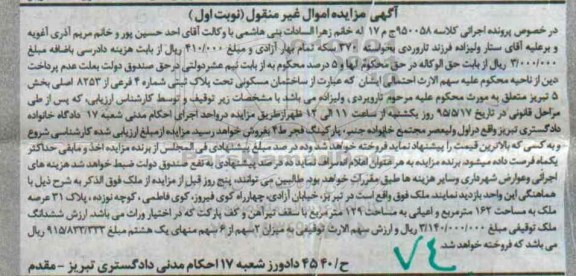 آگهی مزایده اموال غیر منقول (نوبت اول)
در خصوص پرونده اجرائی کلاسه ۹۵۰۰۵۸ج م ۱۷ له خانم زهرا السادات بنی هاشمی با وکالت آقای احد حسین پور و خانم مریم آذری آغویه
و برعلیه آقای ستار ولیزاده فرزند تاروردی بخواسته ۳۷۰ سکه تمام بهار آزادی و مبلغ ۴۱۰/۰۰۰ ریال از بابت هزینه دادرسی باضافه مبلغ
۳/۰۰۰/۰۰۰ ریال از بابت حق الوکاله در حق محکوم لها و ۵ درصد محکوم به از بابت نیم عشر دولتی در حق صندوق دولت بعلت عدم پرداخت
دین از ناحیه محکوم علیه سهم الارث احتمالی ایشان که عبارت از ساختمان مسکونی تحت پلاک ثبتی شماره ۴ فرعی از ۸۲۵۳ اصلی بخش
۵ تبریز متعلق به مورث محکوم علیه مرحوم تاروردی ولیزاده می باشد با مشخصات زیر توقیف و توسط کارشناس ارزیابی، که پس از طی
مراحل قانونی در تاریخ ۹۵/۵/۱۷ روز یکشنبه از ساعت ۱۱ الی ۱۲ ظهر از طریق مزایده در واحد اجرای احکام مدنی شعبه ۱۷ دادگاه خانواده
دادگستری تبریز واقع در اول ولیعصر مجتمع خانواده جنب پارکینگ فجر ط۴ بفروش خواهد رسید. مزایده از مبلغ ارزیابی شده کارشناسی شروع
و به کسی که بالاترین قیمت را پیشنهاد نماید فروخته خواهد شد و ده در صد مبلغ پیشنهادی فی المجلس از برنده مزایده اخذ و مابقی حداکثر
یکماه فرصت داده میشود برنده مزایده به هر عنوان اعلام انصراف نماید ده درصد پیشنهادی به نفع صندوق دولت ضبط خواهد شد هزینه های
اجرائی و عوارض شهرداری و سایر هزینه ها طبق مقررات خواهد بود. طالبین می توانند، پنج روز قبل از مزایده از ملک فوق الذکر به شرح ذیل با
هماهنگی این واحد بازدید نمایند. ملک فوق واقع است در تبریز، خیابان آزادی، چهارراه کوی فیروز، کوی فاطمی، کوچه نوزده، پلاک ۳۱ عرصه
ملک به مساحت ۱۶۲ مترمربع و اعیانی به مساحت ۱۲۹ متر مربع با سقف تیرآهن و کف پارکت که در اختیار وراث می باشد. ارزش ششدانگ
ملک توقیفی مبلغ ۳/۱۴۰/۰۰۰/۰۰۰ ریال و ارزش سهم الارث توقیفی به میزان ۲سهم از ۶ سهم منهای یک هشتم مبلغ ۹۱۵/۸۳۳/۳۳۳ ریال
می باشد که فروخته خواهد شد.
۷۴
ح/۴۵۴۰ دادورز شعبه ۱۷ احکام مدنی دادگستری تبریز - مقدم